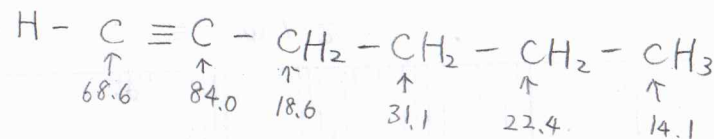 H - C ≡ C - CH₂ - CH₂ - CH₂ - CH₃
↑ ↑ ↑ ↑ ↑ ↑
68.6 84.0 18.6 31.1 22.4 14.1